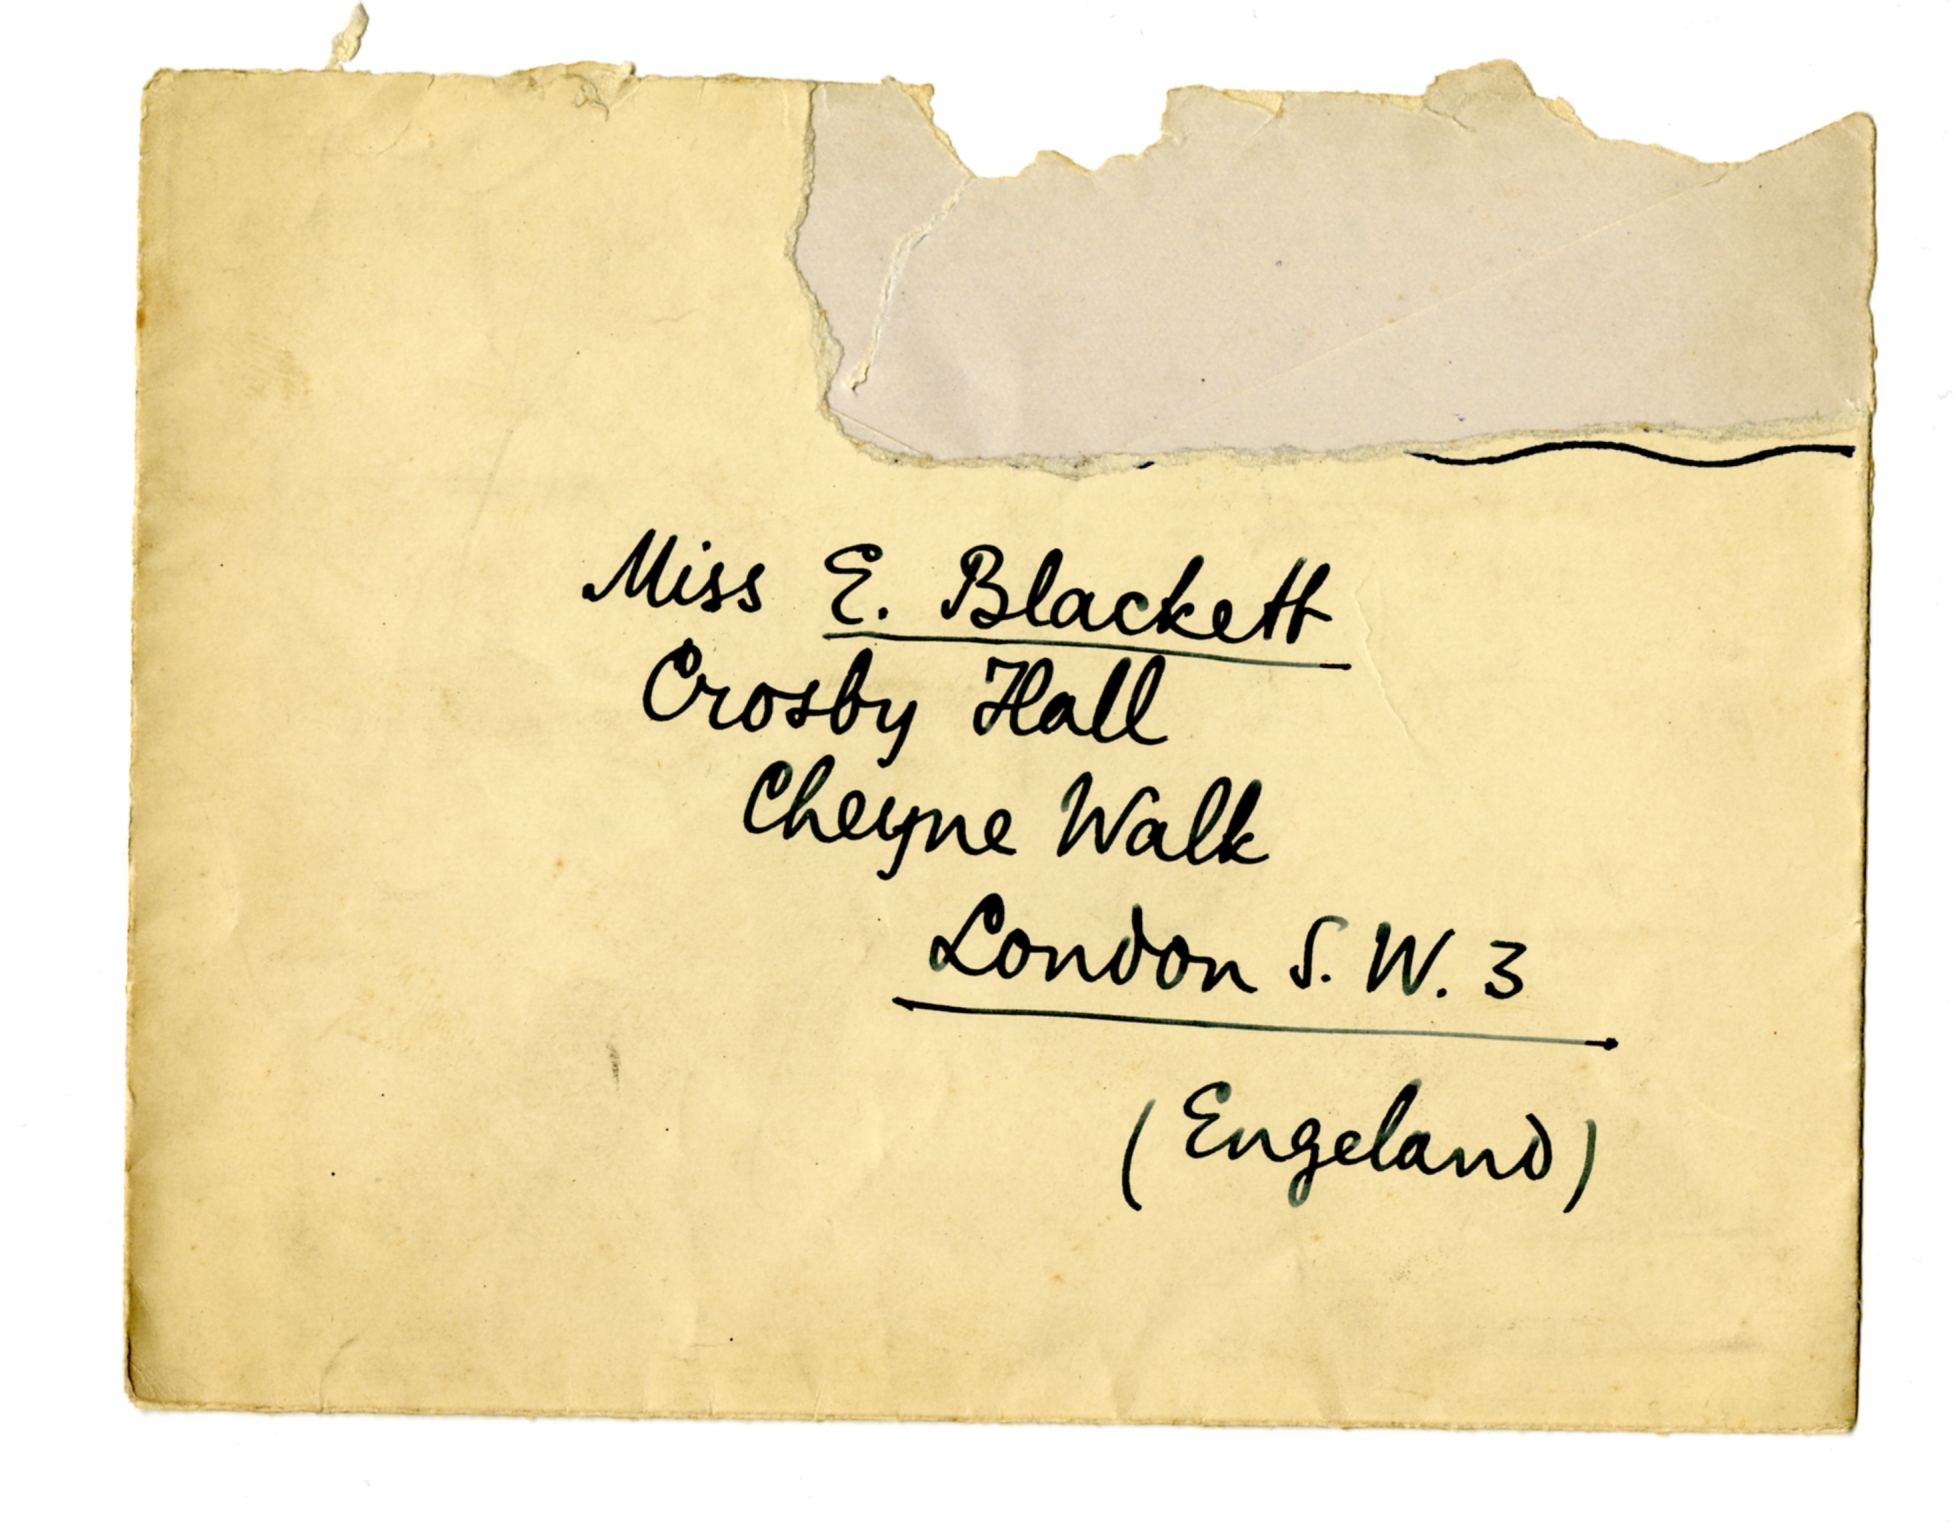 Miss E. Blackett
Crosby Hall
Cheyne Walk
London S. W. 3
(Engeland)